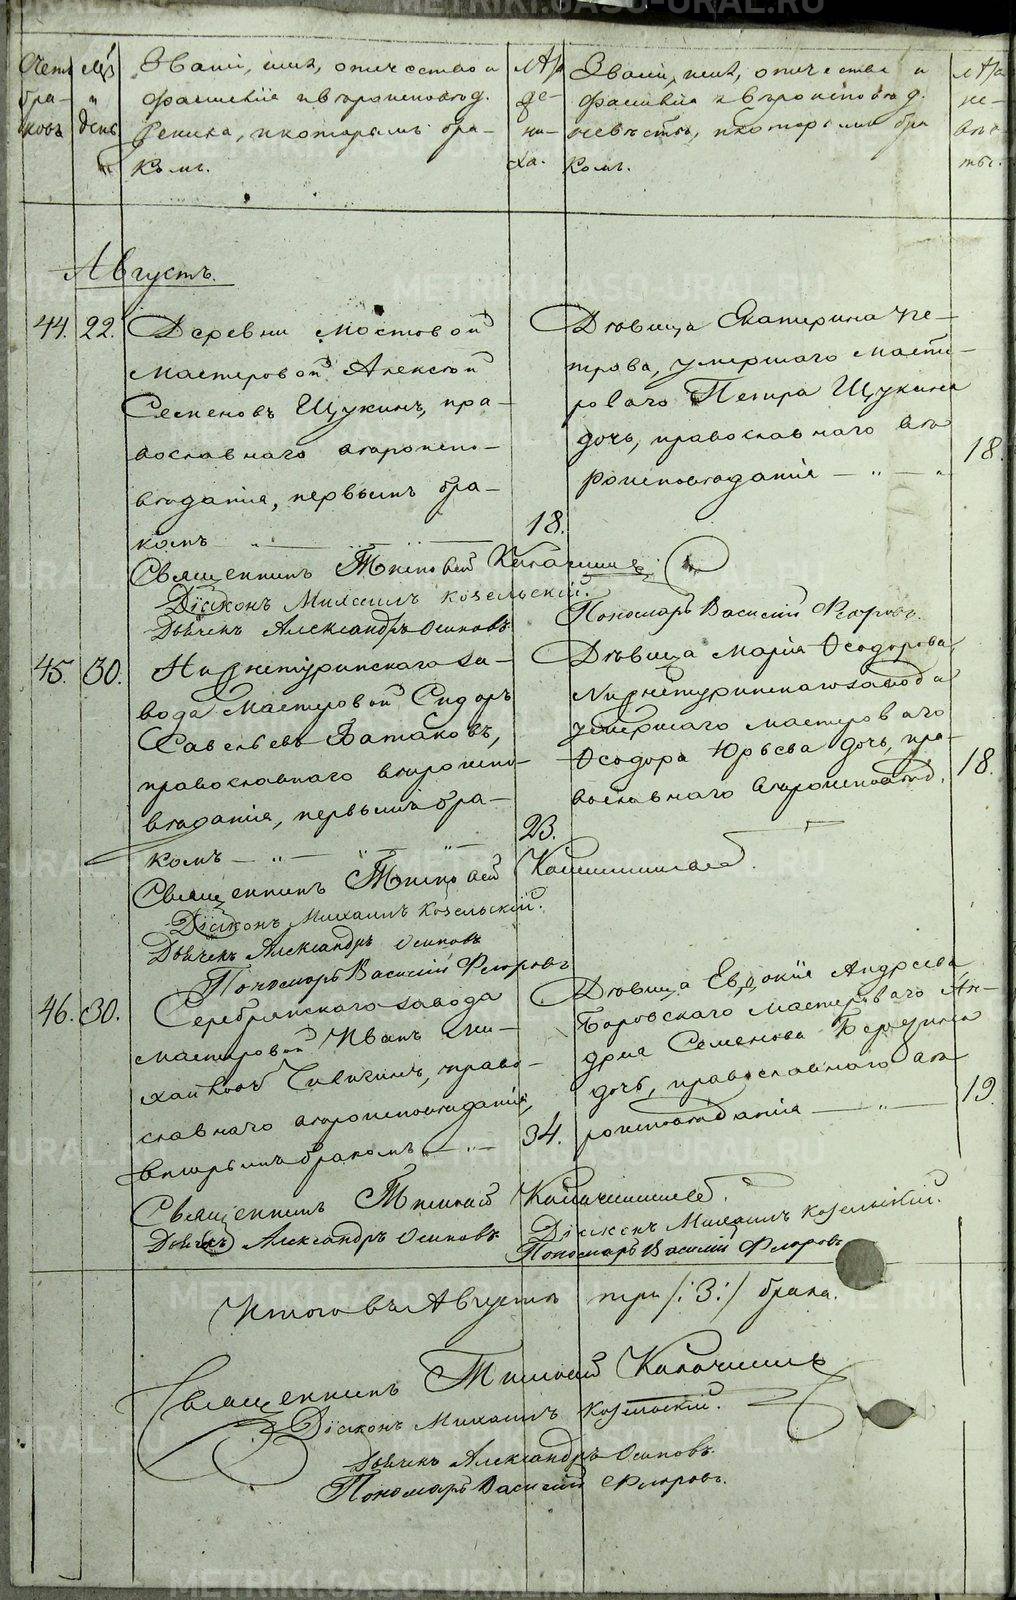 METRIKI.GASO-URAL.RU
Счетъ
бра-
ковъ
Мцъ
и
день
Званіе, имя, отчество и
фамилія и вѣроисповѣд.
жениха, и которымъ бра-
комъ.
лѣта
же-
ни-
ха.
Званіе, имя, отчество и
фамилія и вѣроисповѣд.
невѣсты, и которымъ бра
комъ.
лѣта
не-
вѣс-
ты.
Августъ.
44. 22.
Деревни Мостовой
мастеровой Алексѣй
Семеновъ Щукинъ, пра-
вославнаго вѣроиспо-
вѣданія, первымъ бра-
комъ
18.
Дѣвица Екатерина Пе-
трова, умершаго масте-
роваго Петра Щукина
дочь, православнаго вѣ
роисповѣданія
18.
Священникъ Тимофей
Діаконъ Михаилъ Козельскій.
Дьячекъ Александръ Осиповъ
Пономарь Василій Флоровъ.
45. 30.
Нижнетуринскаго за-
вода Мастеровой Сидоръ
Савельевъ Ватаковъ,
православнаго вѣроиспо-
вѣданія, первымъ бра-
комъ
23.
Дѣвица Марія Ѳеодорова,
Нижнетуринскаго завода
умершаго мастероваго
Ѳеодора Юрьева дочь, пра-
вославнаго вѣроисповѣд.
18.
Священникъ Тимофей
Діаконъ Михаилъ Козельскій.
Дьячекъ Александръ Осиповъ
Пономарь Василій Флоровъ
46. 30.
Серебрянскаго завода
мастеровой Иванъ Ми-
хайловъ православ-
славнаго вѣроисповѣданія,
вторымъ бракомъ
34.
Дѣвица Евдокія Андреева
Баровскаго мастероваго Ан-
дрея Семенова Березина
дочь, православнаго вѣ
роисповѣданія
19.
Священникъ Тимофей
Діаконъ Михаилъ Козельскій.
Дьячекъ Александръ Осиповъ
Пономарь Василій Флоровъ
Итого въ Августѣ три /:3:/ брака.
Священникъ Тимофей
Діаконъ Михаилъ Козельскій.
Дьячекъ Александръ Осиповъ.
Пономарь Василій Флоровъ.
METRIKI.GASO-URAL.RU